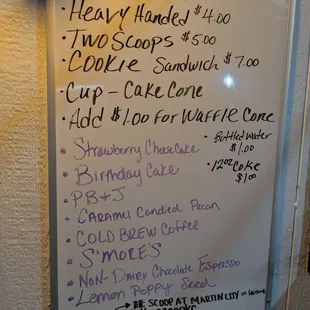 • Heavy Handed $4.00
• Two Scoops $5.00
• Cookie Sandwich $7.00
• Cup - Cake Cone
• Add $1.00 for Waffle Cone
• Strawberry CheeseCake
• Bottled Water
$1.00
• Birthday Cake
• 12oz Coke
$1.00
• PB+J
• Caramel Candied Pecan
• Cold Brew Coffee
• S'mores
• Non-Dairy Chocolate Espresso
• Lemon Poppy Seed
→ Be Scoop at Martin City on Facebook